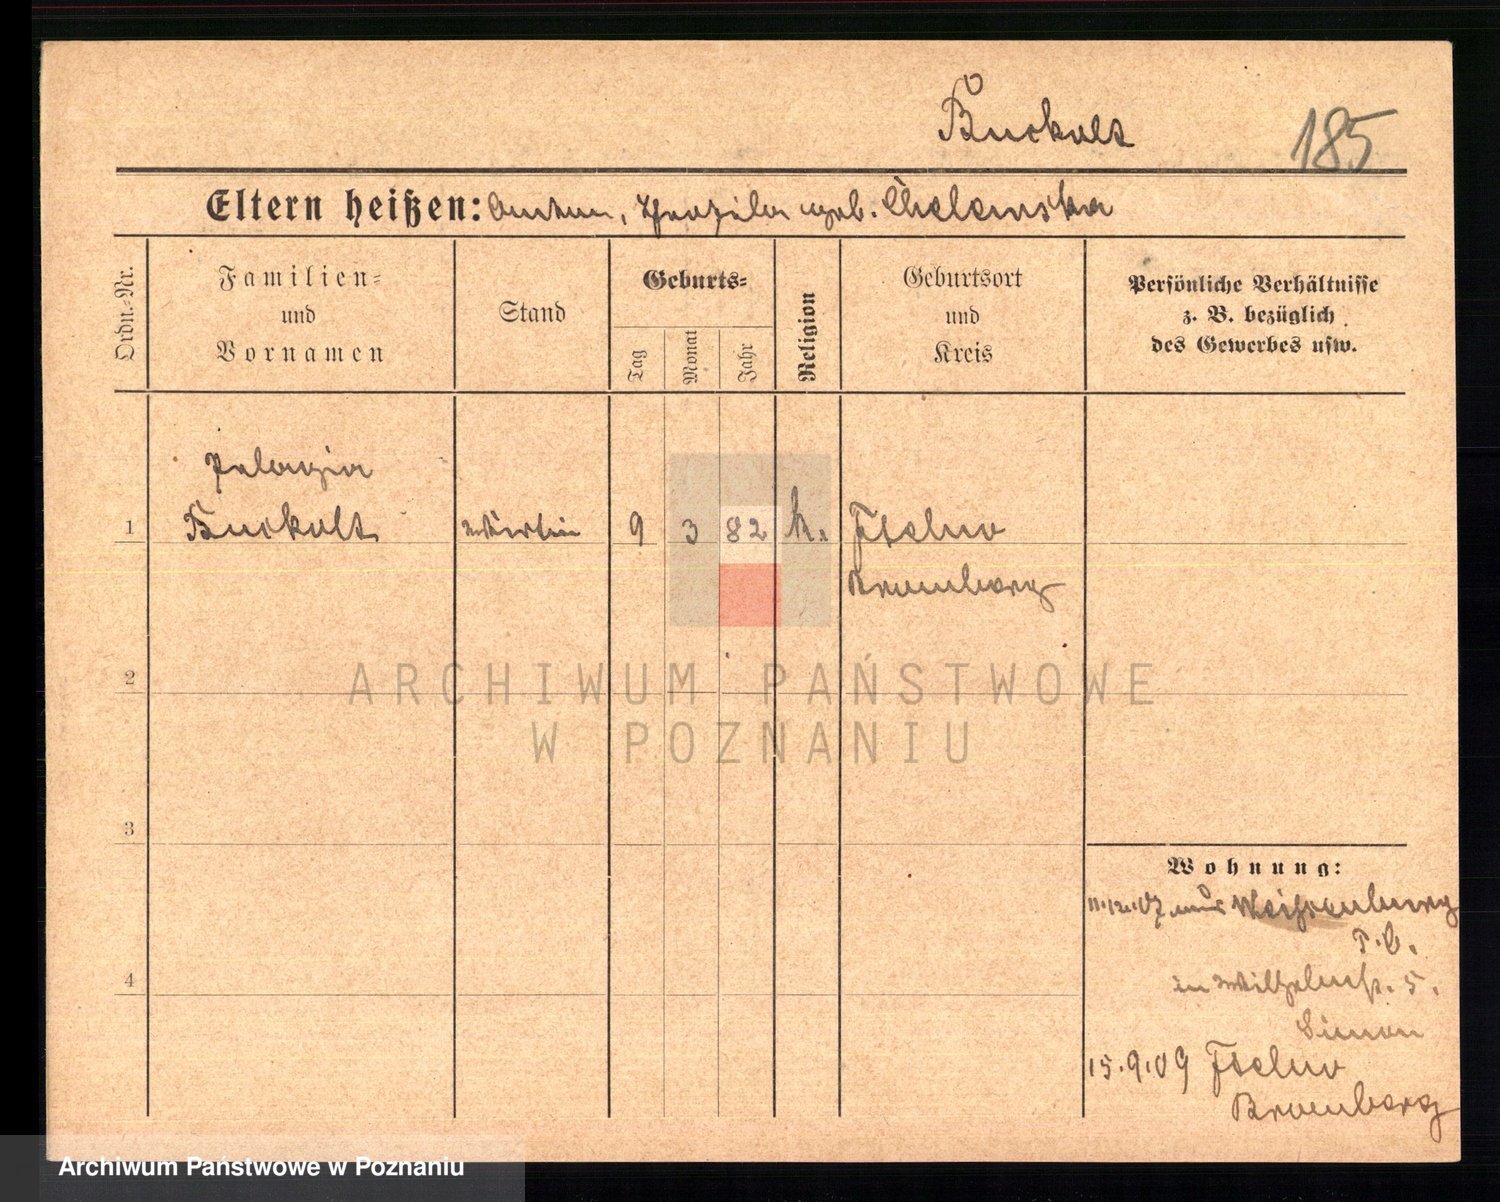 Buckolt
185
Eltern heißen: Anton, geb. Chelemska
Ordn.-Nr.
Familien- und Vornamen
Stand
Geburts-
Tag
Monat
Jahr
Religion
Geburtsort und Kreis
Persönliche Verhältnisse z. B. bezüglich des Gewerbes usw.
Pelagia
1 Buckolt 9 3 82 k.
Bromberg
2
3
4
Wohnung:
11.12.07 aus Weissenburg
in Wilhelmstr. 5.
Simon
15.9.09
Bromberg
ARCHIWUM PAŃSTWOWE
W POZNANIU
Archiwum Państwowe w Poznaniu